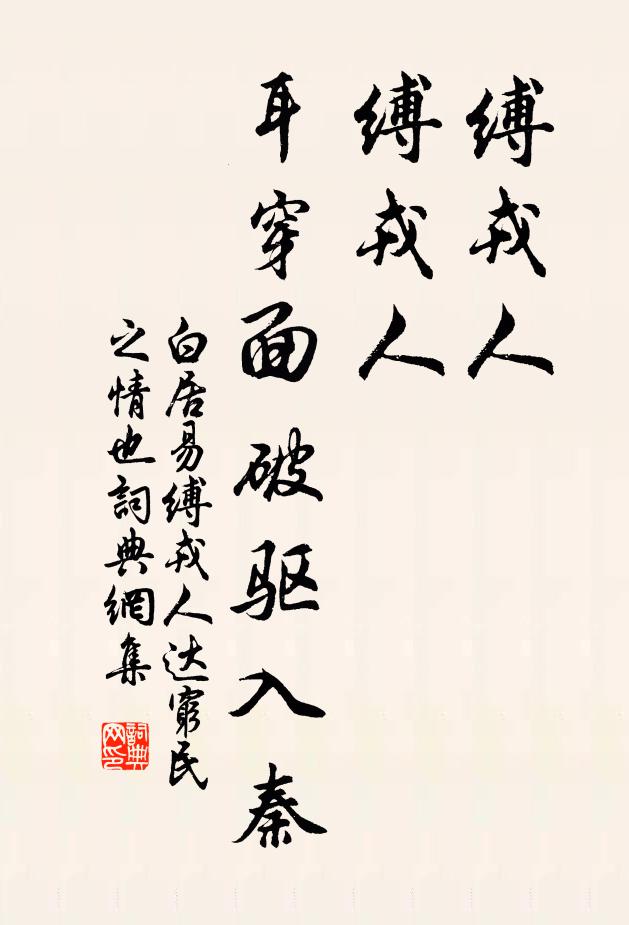 缚戎人
缚戎人
耳穿面破驱入秦
白居易缚戎人达窮民
之情也詞典網集
詞典
网印